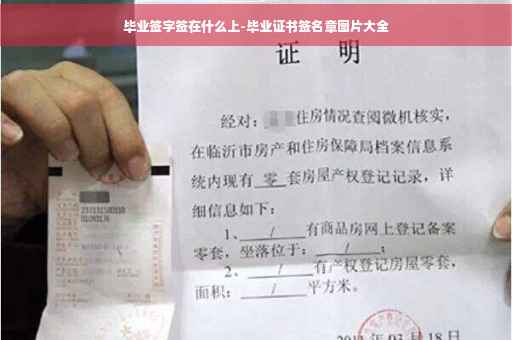 毕业签字签在什么上-毕业证书签名章图片大全
证 明
经对： 住房情况查阅微机核实，
在临沂市房产和住房保障局档案信息系
统内现有 零 套房屋产权登记记录，详
细信息如下：
1、 / 有商品房网上登记备案
零套，坐落位于： / ；
2、 / 有产权登记房屋零套，
面积： / 平方米。
03 月 18 日